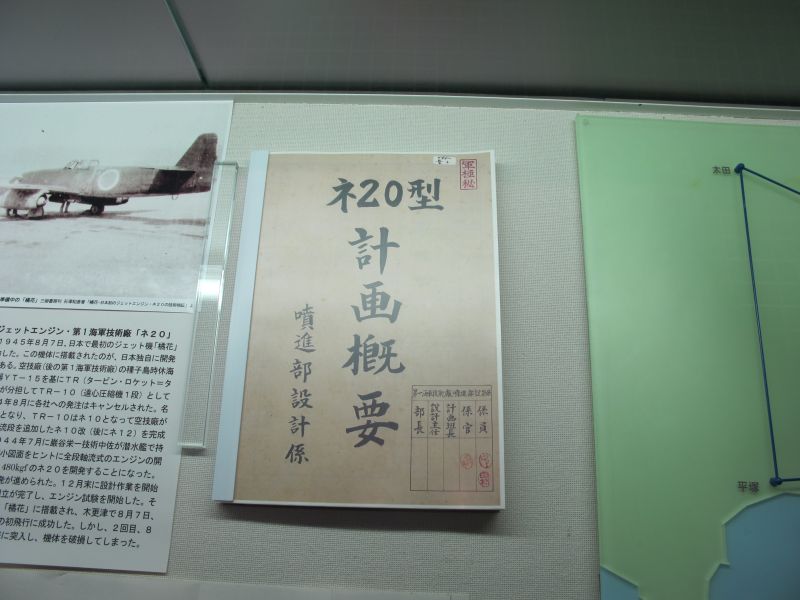 準備中の「橘花」
ジェットエンジン・第1海軍技術廠「ネ20」
1945年8月7日、日本で最初のジェット機「橘花」
した。この機体に搭載されたのが、日本独自に開発
ある。空技廠（後の第1海軍技術廠）の種子島時休海
YT－15を基にTR（タービン・ロケット＝タ
が分担してTR－10（遠心圧縮機1段）として
4年8月に各社への発注はキャンセルされた。名
となり、TR－10はネ10となって空技廠が
流段を追加したネ10改（後にネ12）を完成
944年7月に巌谷栄一技術中佐が潜水艦で持
小図面をヒントに全段軸流式のエンジンの開
480kgfのネ20を開発することになった。
発が進められた。12月末に設計作業を開始
立が完了し、エンジン試験を開始した。そ
「橘花」に搭載され、木更津で8月7日、
の初飛行に成功した。しかし、2回目、8
に突入し、機体を破損してしまった。
軍極秘
ネ20型
計画概要
噴進部設計係
係員
係官
計画班長
設計主任
部長
太田
平塚